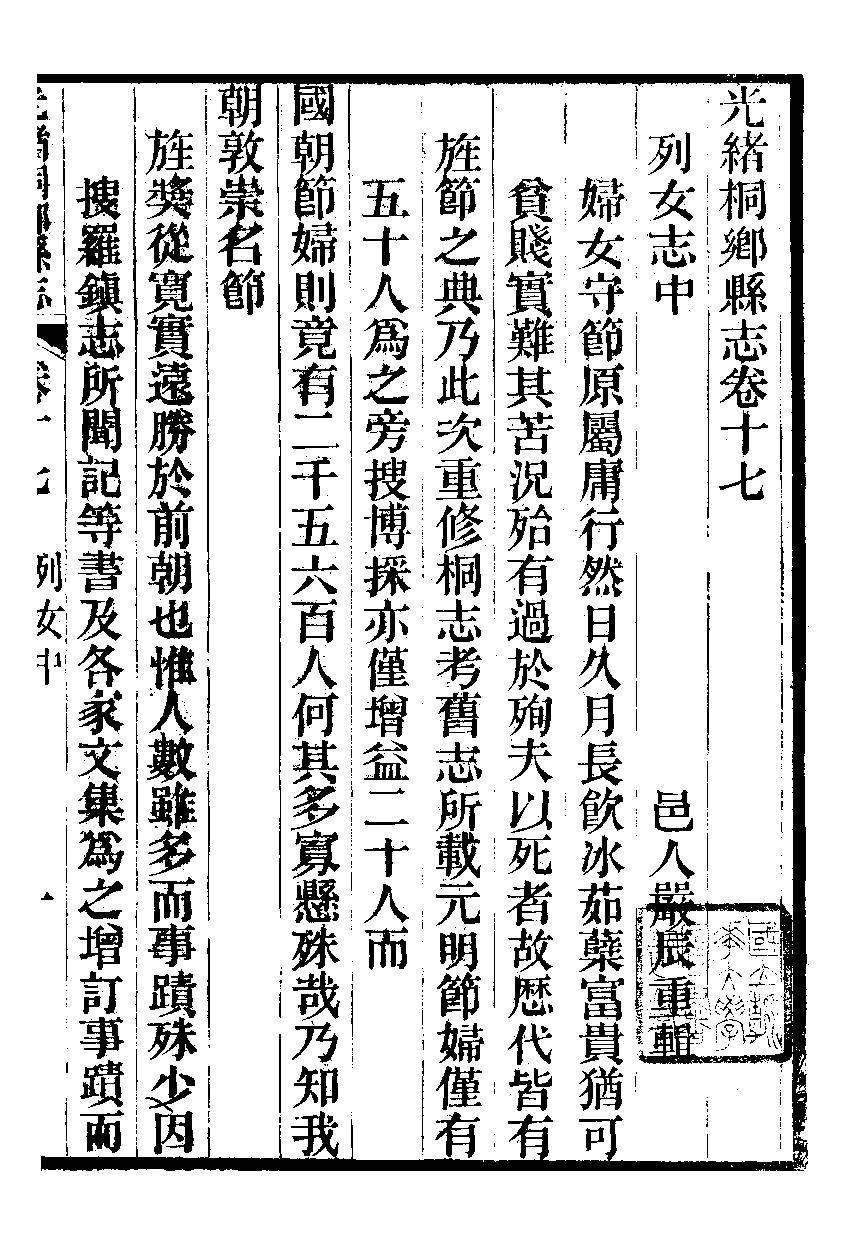 光緒桐鄉縣志卷十七
列女志中 邑人嚴辰重輯
婦女守節原屬庸行然日久月長飮冰茹蘗富貴猶可
貧賤實難其苦況殆有過於殉夫以死者故歷代皆有
旌節之典乃此次重修桐志考舊志所載元明節婦僅有
五十人爲之旁搜博採亦僅增益二十人而
國朝節婦則竟有二千五六百人何其多寡懸殊哉乃知我
朝敦崇名節
旌獎從寬實遠勝於前朝也惟人數雖多而事蹟殊少因
搜羅鎭志所聞記等書及各家文集爲之增訂事蹟而
光緒桐鄉縣志 卷十七 列女中 一